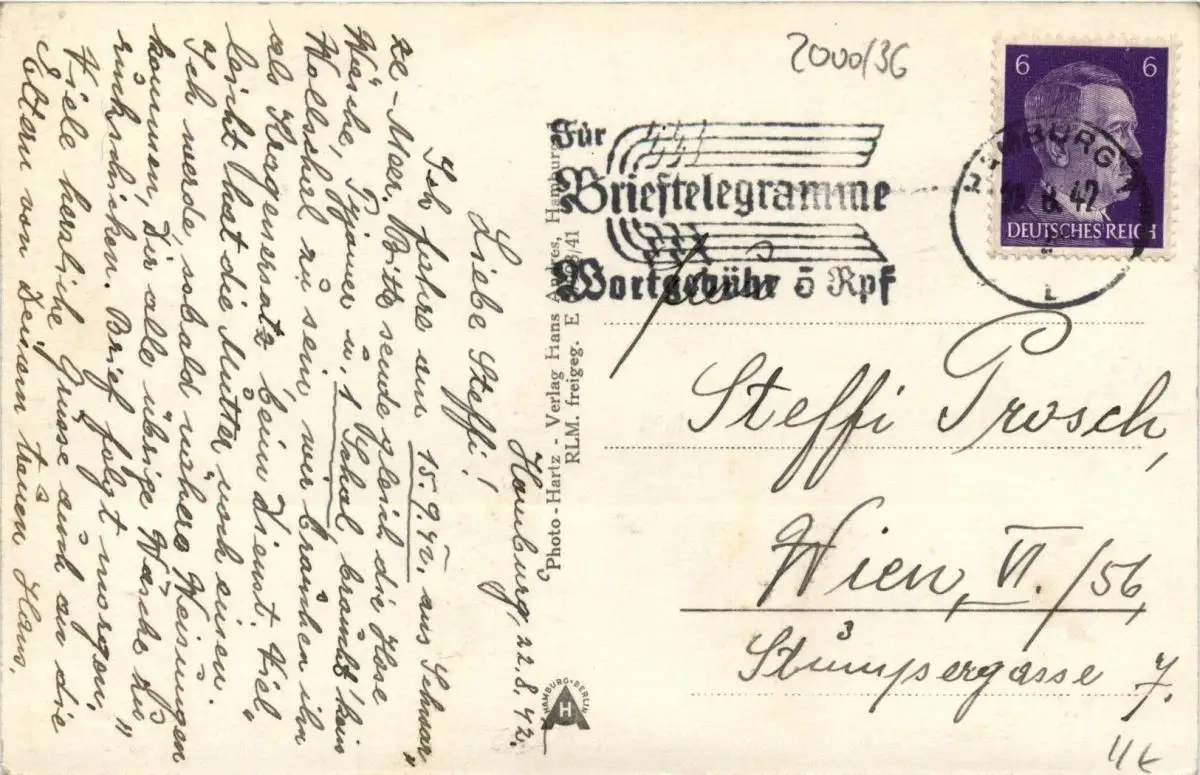 Hamburg, 22.8.42.
Liebe Steffi!
Ich fahre am 15.9.42, aus Schwar„
ze-Meer. Bitte sende gleich die Hose
Wäsche, Pyjamer u. 1 Schal, braucht kein
Wollschal zu sein, wir brauchen ihn
als Kragenersatz beim Dienst. Viel„
leicht hast die Mutter noch einen.
Ich werde, sobald nähere Weisungen
kommen, Dir alle übrige Wäsche zu„
rückschicken. Brief folgt morgen,
Viele herzliche Grüsse auch an die
Eltern von Deinem treuen Hans.
Photo-Hartz - Verlag Hans Andres, Hamburg
RLM. freigeg. E 41
HAMBURG-BERLIN
H
2000/36
6 6
DEUTSCHES REICH
HAMBURG
22.8.42
Für
Brieftelegramme
Wortgebühr 5 Rpf
Steffi Prosch,
Wien, VI./56,
Stumpergasse 7.
3